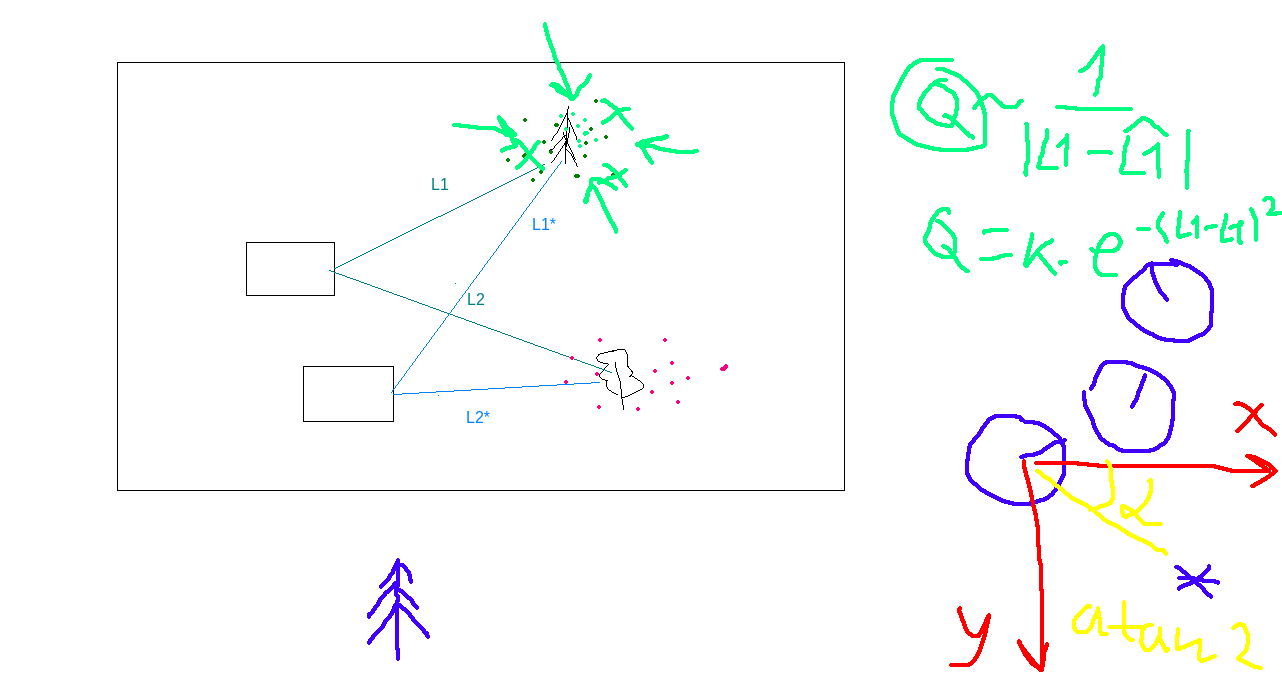 L1
L1*
L2
L2*
Q ~ 1
|L1 - L̂1|
Q = k · e^-(L1-L̂1)^2
x
α
y
atan2